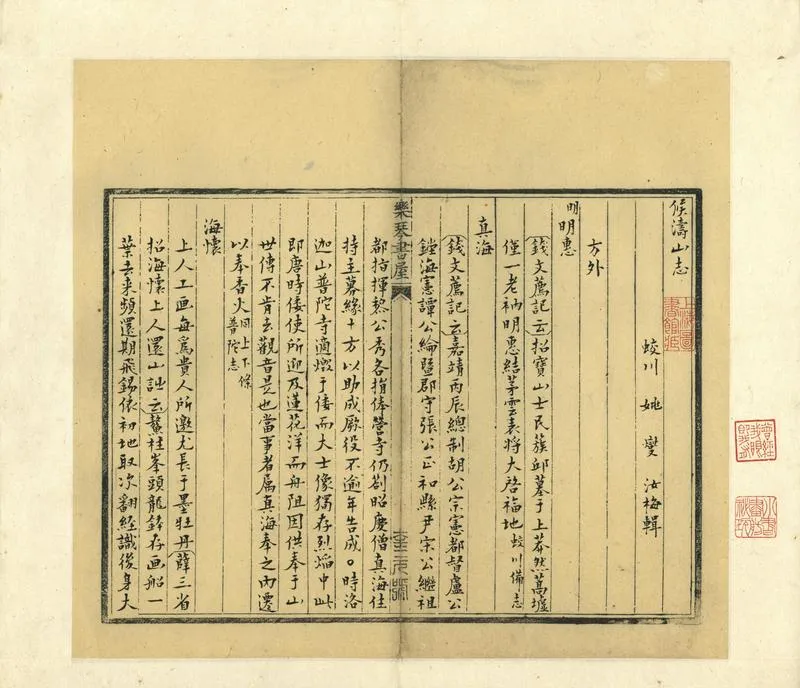 候濤山志
蛟川 姚燮 汝梅輯
方外
明明惠
錢文薦記云招寶山士民蔟邱墓于上莽然蒿墟
僅一老衲明惠結茅雲表將大啓福地蛟川備志
真海
錢文薦記云嘉靖丙辰總制胡公宗憲都督盧公
鏜海憲譚公綸暨郡守張公正和縣尹宗公繼祖
都指揮黎公秀各捐俸營寺仍劄昭慶僧真海住
持主募緣十方以助成厥役不逾年告成時洛
迦山普陀寺適燬于倭而大士像獨存烈焰中此
即唐時倭使所迎及蓮花洋而舟阻因供奉于山
世傳不肯去觀音是也當事者屬真海奉之內遷
以奉香火同上下條
普陀志
海懷
上人工画每爲貴人所邀尤長于墨牡丹薛三省
招海懷上人還山詩云鰲柱峯頭龍鉢存画船一
葉去來頻還期飛錫依初地取次翻經識後身大
樂琴書屋
上海圖
書館藏